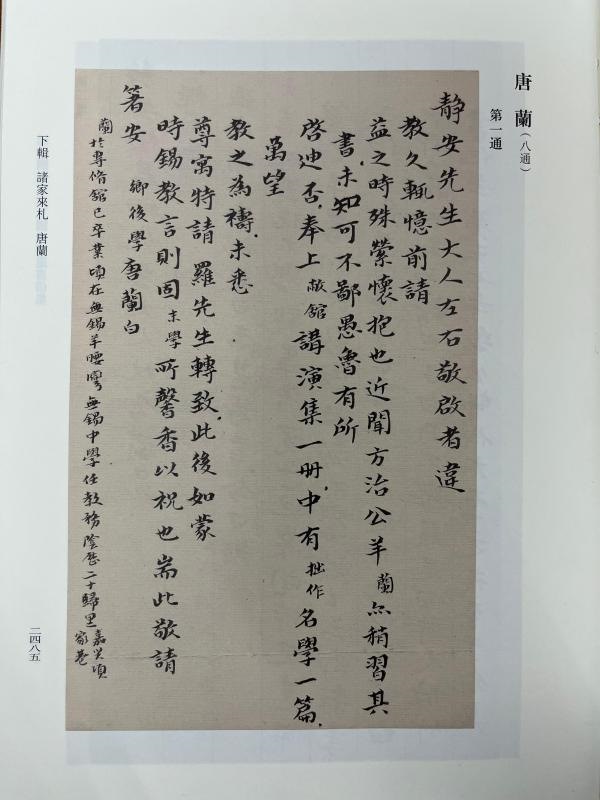 唐 蘭（八通）
第一通
静安先生大人左右敬啟者違
教久輒憶前請
益之時殊縈懷抱也近聞方治公羊蘭亦稍習其
書未知可不鄙愚魯有所
啓迪否奉上敝館講演集一册中有拙作名學一篇
萬望
教之為禱未悉
尊寓特請羅先生轉致此後如蒙
時錫教言則固末學所馨香以祝也耑此敬請
箸安 鄉後學唐蘭白
蘭於專脩舘已卒業頃在無錫羊腰灣無錫中學任教務陰歷二十歸里嘉興項
家巷
下輯 諸家來札 唐蘭
二四八五